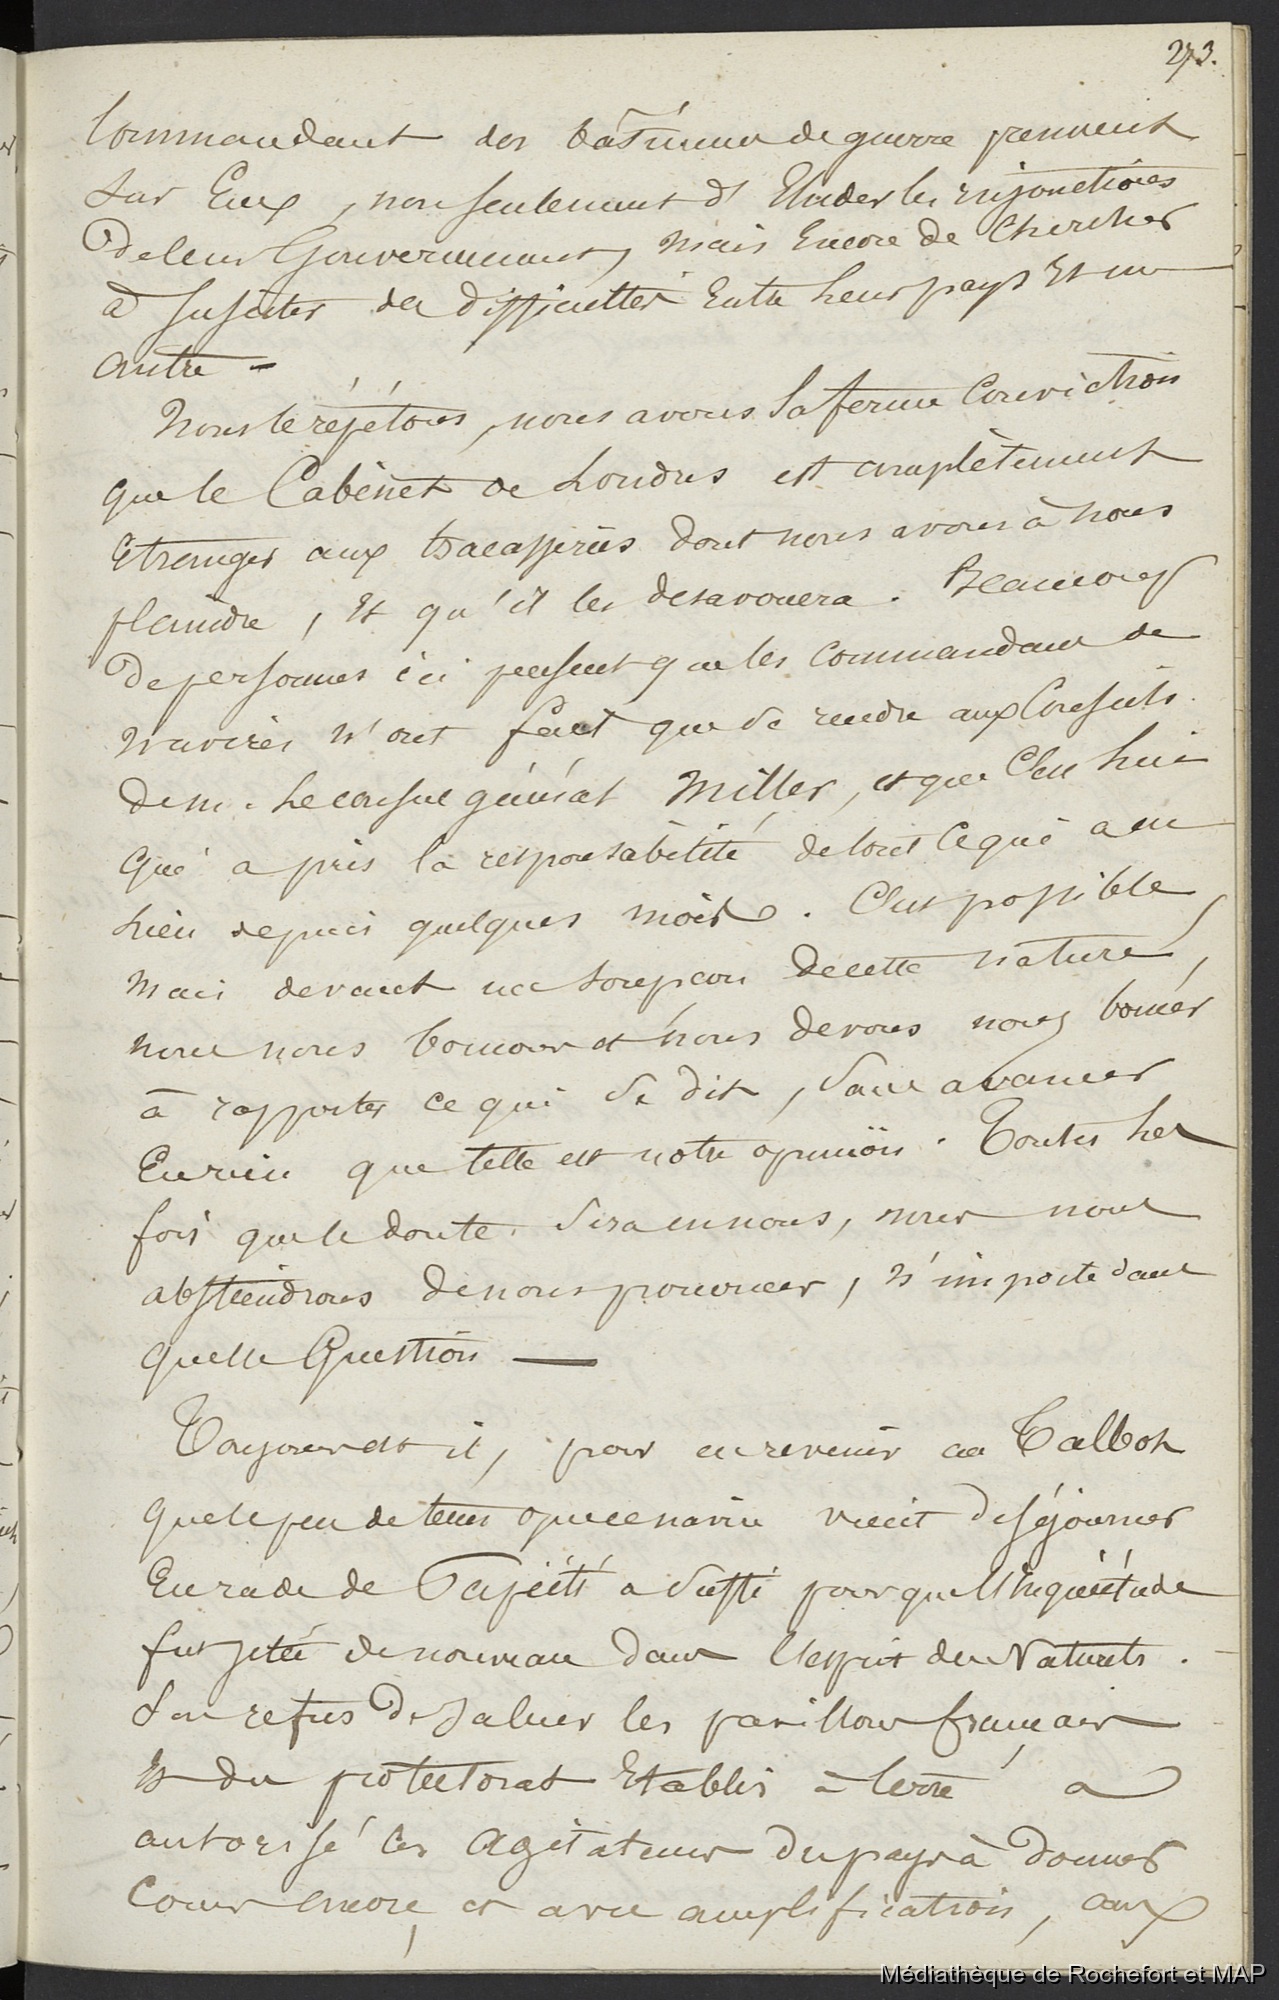 273.
Commandant des bâtiments de guerre prennent
sur Eux, non seulement d'Eluder les injonctions
de leur Gouvernement, mais Encore de Chercher
à susciter des difficultés Entre leur pays Et un
autre —
Nous le répétons, nous avons la ferme Conviction
que le Cabinet de Londres est complètement
Etranger aux tracasseries dont nous avons à nous
plaindre, Et qu'il les desavouera. Beaucoup
de personnes ici pensent que les commandans de
navires n'ont fait que se rendre aux Conseils
de m. le consul général Miller, et que C'est lui
qui a pris la responsabilité de tout ce qui a eu
lieu depuis quelques mois. C'est possible,
mais devant un soupçon de cette nature,
nous nous bornons et nous devons nous borner
à rapporter ce qui se dit, sans avancer
En rien que telle est notre opinion. Toutes les
fois que le doute sera en nous, nous nous
abstiendrons de nous prononcer, n'importe dans
quelle Question —
Toujours est il, pour en revenir au Talbot
que le peu de tems que ce navire vient de séjourner
En rade de Papéïti a suffi pour que l'inquiétude
fut jetée de nouveau dans l'esprit des Naturels.
Son refus de saluer les pavillons français
Et du protectorat Etablis à terre a
autorisé les agitateurs du pays à donner
Cours encore, et avec amplification, aux
Médiathèque de Rochefort et MAP